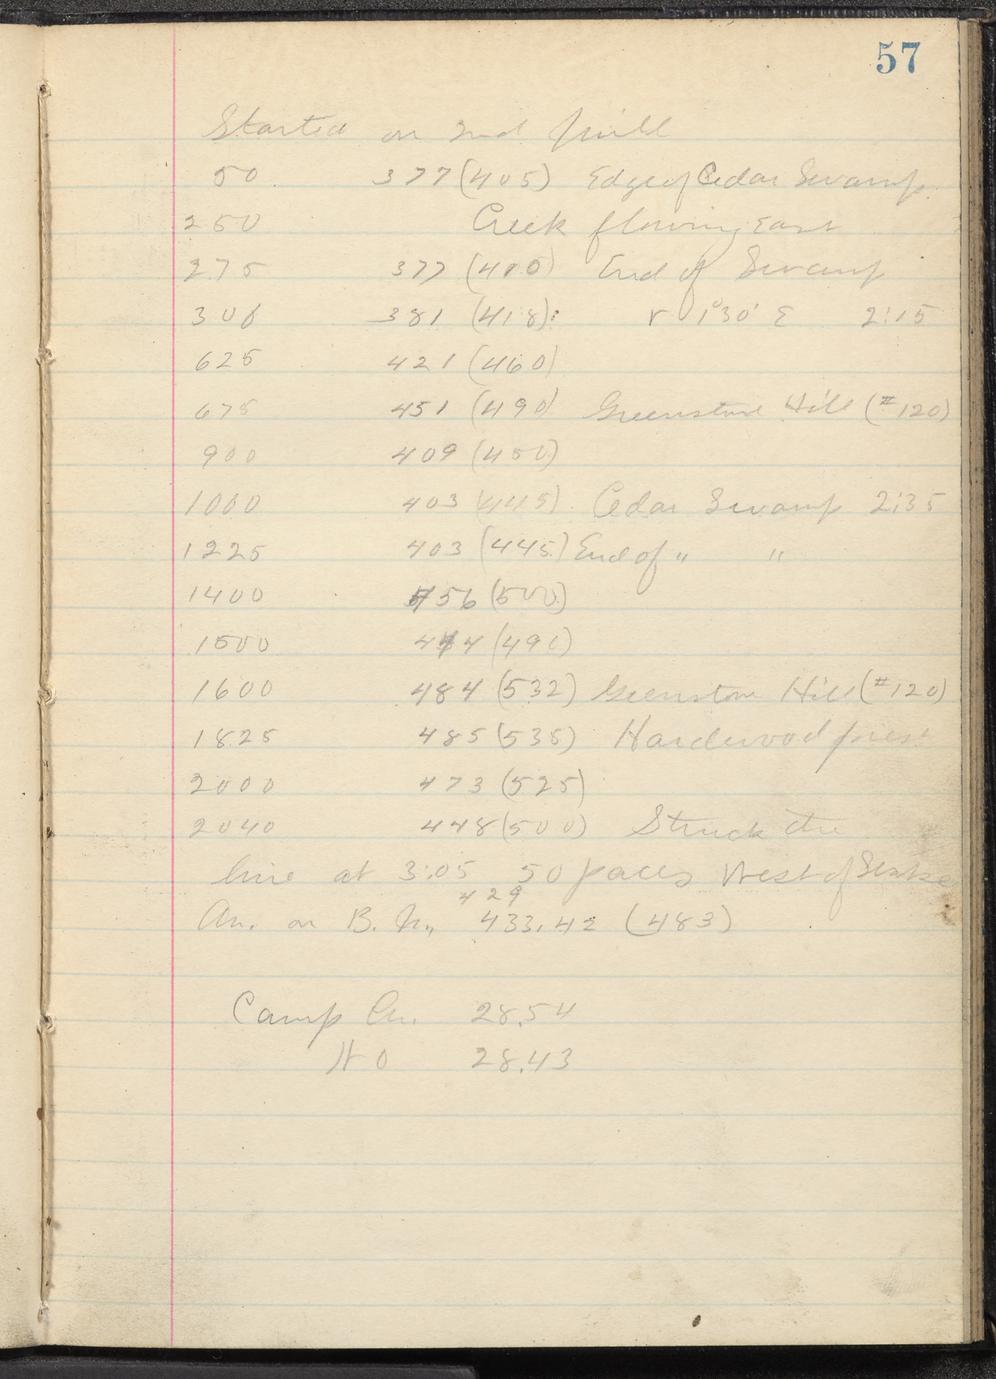 57
Started on 2nd mill
50 377 (405) Edge of Cedar Swamp.
250 Creek flowing East
275 377 (400) End of Swamp
306 381 (418): V 1°30' E 2:15
625 421 (460)
675 451 (490) Greenstone Hill (#120)
900 409 (450)
1000 403 (445) Cedar Swamp 2:35
1225 403 (445) End of " "
1400 456 (500)
1500 444 (490)
1600 484 (532) Greenstone Hill (#120)
1825 485 (535) Hardwood forest
2000 473 (525)
2040 448 (500) Struck the
line at 3:05 50 paces West of Stake
429
An. or B. N., 433.42 (483)
Camp An. 28.54
No 28.43